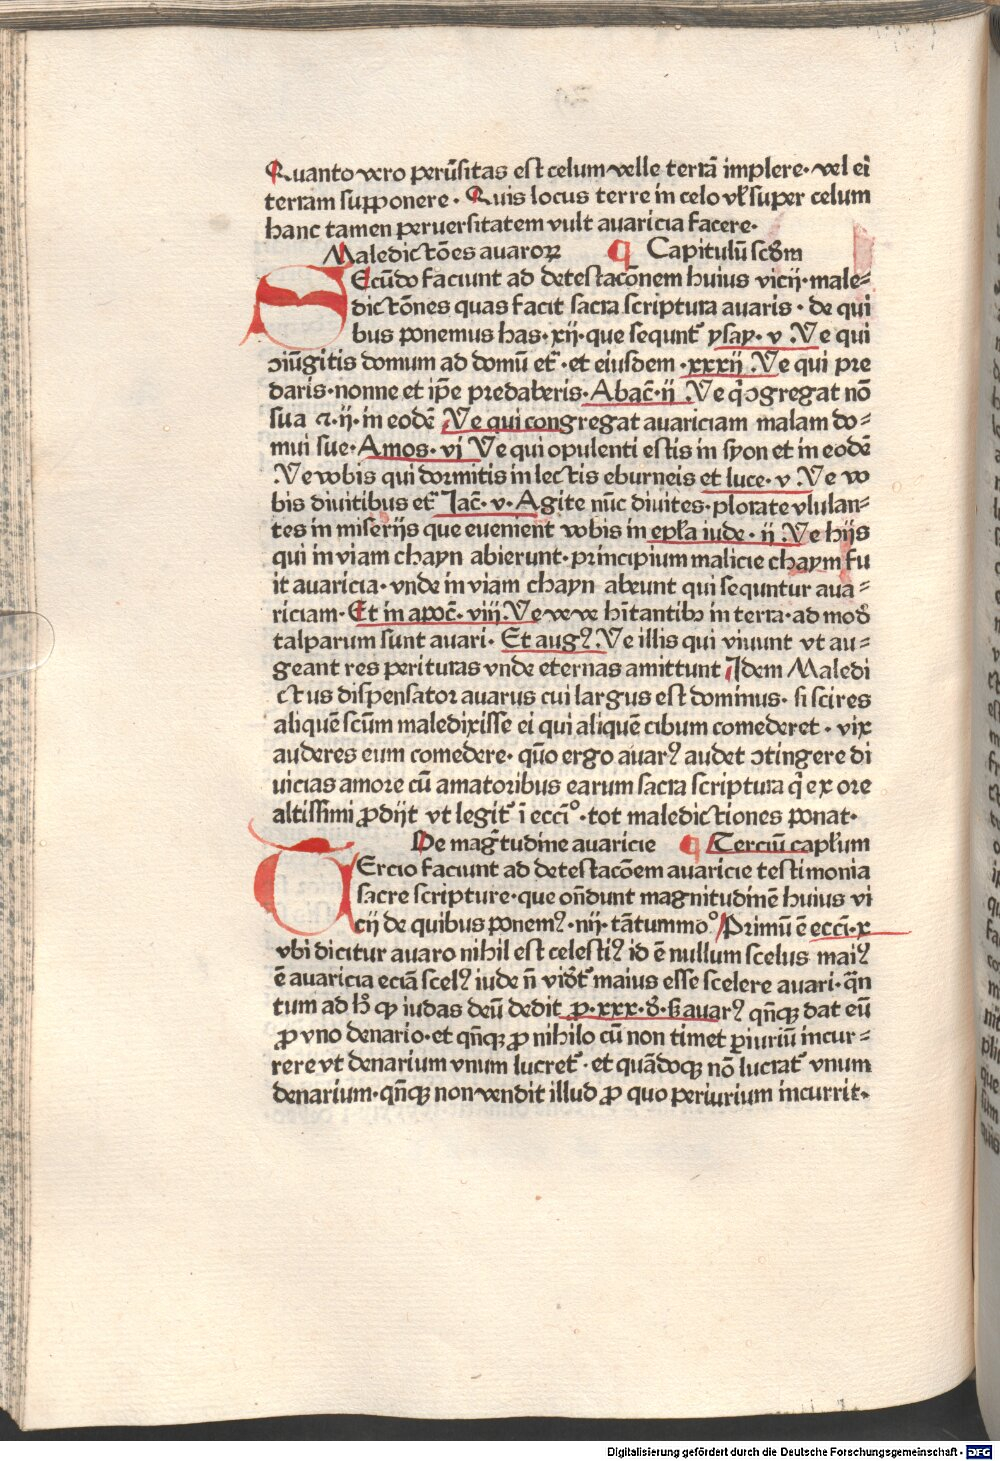 Quanto vero perũsitas est celum velle terrã implere· vel ei
terram supponere · Quis locus terre in celo vł super celum
hanc tamen peruersitatem vult auaricia facere·
Maledictões auaroꝝ ¶ Capitulũ scđm
SEcũdo faciunt ad detestacõnem huius vicij· male-
dictõnes quas facit sacra scriptura auaris · de qui
bus ponemus has· xij· que sequnt᷑ ysay· v Ve qui
ꝯiũgitis domum ad domũ et᷑· et eiusdem ·xxxij Ve qui pre
daris· nonne et ip̃e predaberis· Abac̃· ij Ve q̇ ꝯgregat nõ
sua ⁊· ij· in eodẽ Ve qui congregat auariciam malam do-
mui sue· Amos· vi Ve qui opulenti estis in syon et in eodẽ
Ve vobis qui dormitis in lectis eburneis et luce· v· Ve vo
bis diuitibus et᷑ Jac̃· v· Agite nũc diuites· plorate vlulan-
tes in miserijs que euenient vobis in epła iude· ij Ve hijs
qui in viam chayn abierunt· principium malicie chaym fu
it auaricia· vnde in viam chayn abeunt qui sequntur aua-
riciam· Et in apoc̃· viij· Ve ve ve hĩtantibꝫ in terra· ad modũ
talparum sunt auari· Et augꝰ· Ve illis qui viuunt vt au-
geant res perituras vnde eternas amittunt Jdem Maledi
ctus dispensator auarus cui largus est dominus· si scires
aliquẽ scũm maledixisse ei qui aliquẽ cibum comederet · vix
auderes eum comedere· quõ ergo auarꝰ audet ꝯtingere di
uicias amore cũ amatoribus earum sacra scriptura q̃ ex ore
altissimi ꝓdijt vt legit᷑ ĩ ecciº· tot maledictiones ponat·
De mag̃tudine auaricie ¶ Terciũ capłum
TErcio faciunt ad detestacõem auaricie testimonia
sacre scripture· que oñdunt magnitudinẽ huius vi
cij de quibus ponemꝰ· iiij· tãtummoº Primũ ẽ ecci̇· x
vbi dicitur auaro nihil est celestiꝰ id ẽ nullum scelus maiꝰ
ẽ auaricia eciã scelꝰ iude ñ vidt᷑ maius esse scelere auari· q̃n
tum ad h̃ ꝙ iudas deũ dedit ꝓ· xxx· đ· ß auarꝰ qñqꝫ dat eũ
ꝓ vno denario· et qñqꝫ ꝓ nihilo cũ non timet ꝑiuriũ incur-
rere vt denarium vnum lucret᷑· et quãdoqꝫ nõ lucrat᷑ vnum
denarium· qñqꝫ non vendit illud ꝓ quo periurium incurrit·
Digitalisierung gefördert durch die Deutsche Forschungsgemeinschaft - DFG